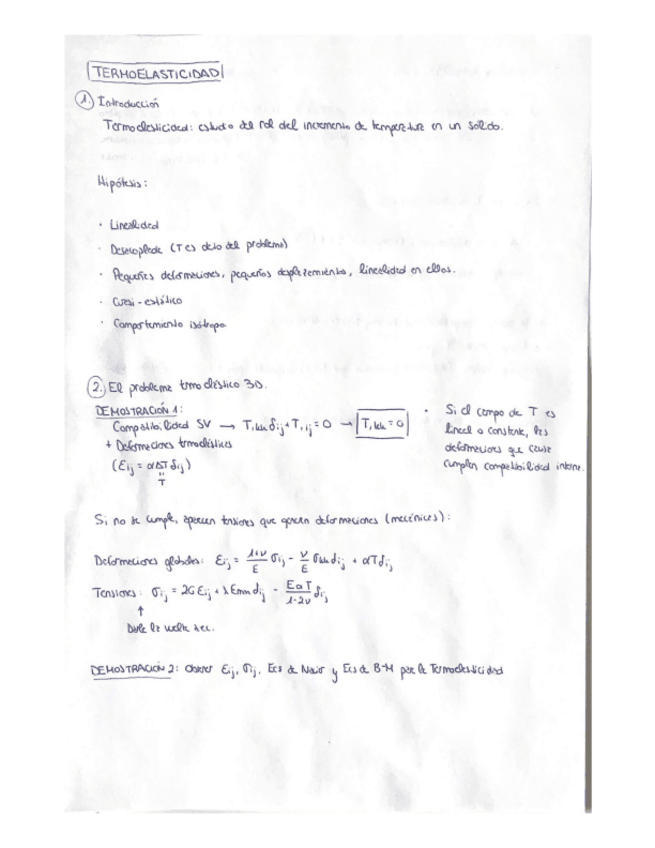 TERMOELASTICIDAD
1. Introducción
Termoelasticidad: estudio del rol del incremento de temperatura en un sólido.
Hipótesis:
· Linealidad
· Desacoplada (T es dato del problema)
· Pequeñas deformaciones, pequeños desplazamientos, linealidad en ellos.
· Cuasi-estático
· Comportamiento isótropo
2. El problema termoelástico 3D.
DEMOSTRACIÓN 1:
Compatibilidad SV → T,kk δij + T,ij = 0 → T,kk = 0
+ Deformaciones termoelásticas
(εij = αΔT δij)
"
T
· Si el campo de T es
lineal o constante, las
deformaciones que causa
cumplen compatibilidad interna.
Si no se cumple, aparecen tensiones que generan deformaciones (mecánicas):
Deformaciones globales: εij = 1+ν/E σij - ν/E σkk δij + αT δij
Tensiones: σij = 2G εij + λ εmm δij - EαT/1-2ν δij
↑
Darle la vuelta a ec.
DEMOSTRACIÓN 2: Obtener εij, σij, Ecs de Navier y Ecs de B-M para la Termoelasticidad